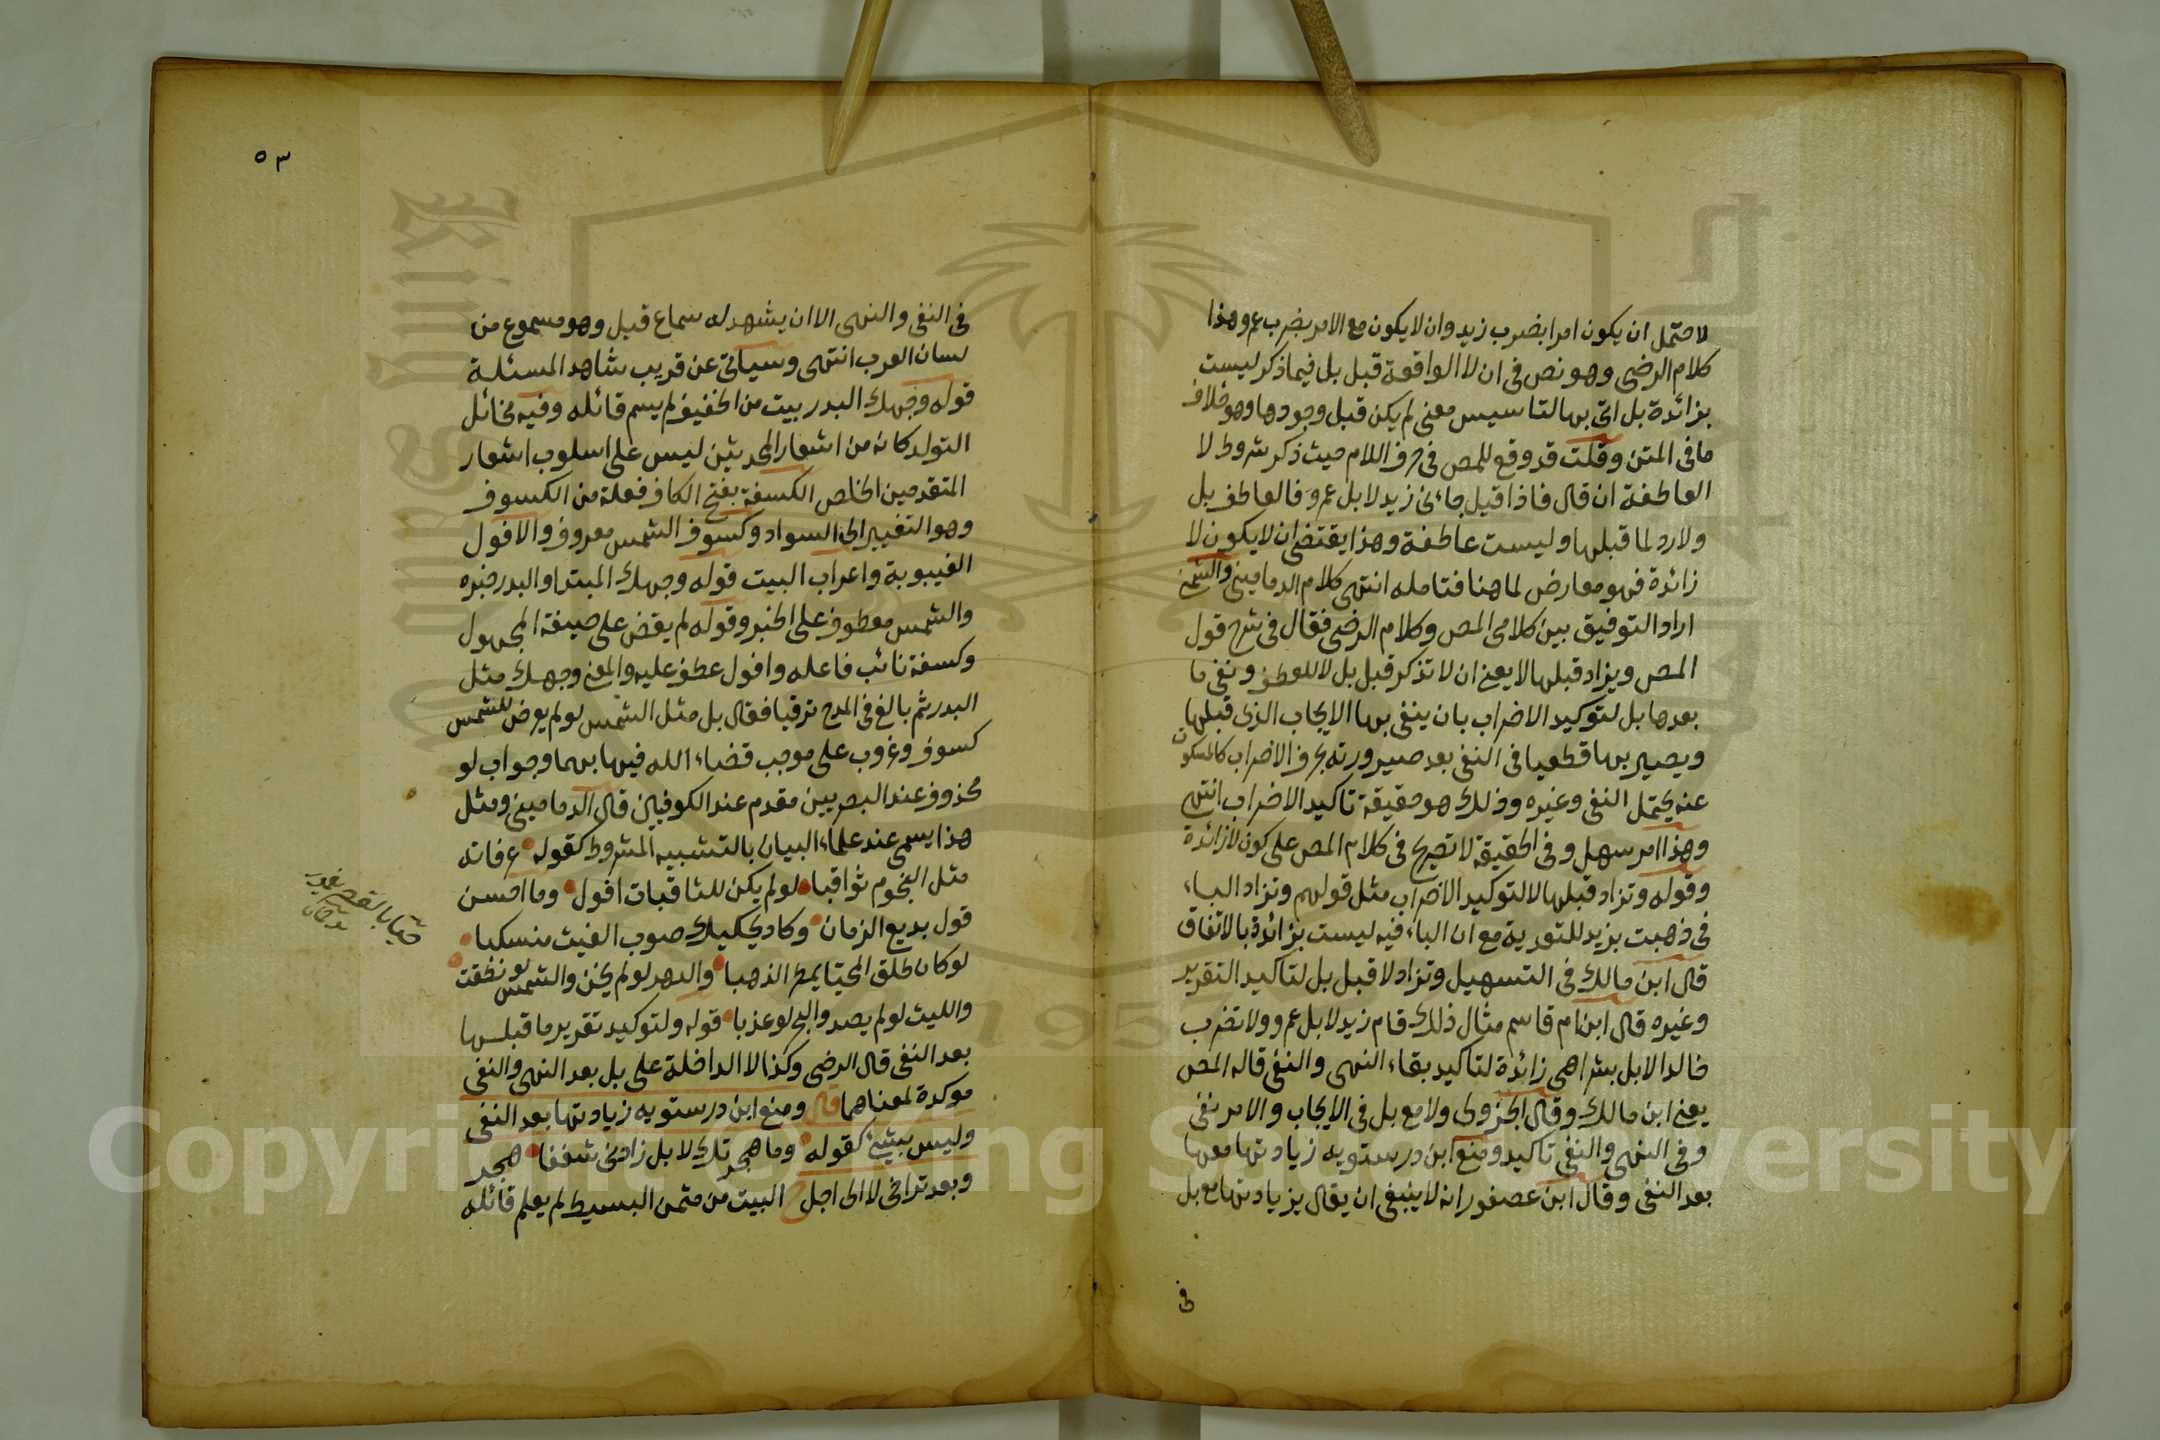 لاحتمل ان يكون امرا بضرب زيد وان لا يكون مع الامر بضرب عمرو هذا
كلام الرضى وهو نص فى ان لا الواقعة قبل بل فيما ذكر ليست
بزائدة بل اتى بها لتاسيس معنى لم يكن قبل وجودها وهو خلاف
ما فى المتن وقلت قد وقع للمص فى حرف اللام حيث ذكر شروط لا
العاطفة ان قال فاذا قيل جاءنى زيد لا بل عمرو فالعاطف بل
ولا رد لما قبلها وليست عاطفة وهذا يقتضى ان لا يكون لا
زائدة فهو معارض لما هنا فتامله انتهى كلام الدمامينى والشمنى
اراد التوفيق بين كلامى المص وكلام الرضى فقال فى شرح قول
المص ويزاد قبلها لا يعنى ان لا تذكر قبل بل لا للعطف ونفى ما
بعدها بل لتوكيد الاضراب بان ينفى بها الايجاب الذى قبلها
ويصير بها قطعيا فى النفى بعد صيرورته بحرف الاضراب كالمسكوت
عنه يحتمل النفى وغيره وذلك هو حقيقة تاكيد الاضراب انتهى
وهذا امر سهل وفى الحقيقة لا تصريح فى كلام المص على كون لا زائدة
وقوله وتزاد قبلها لا لتوكيد الاضراب مثل قولهم وتزاد الباء
فى ذهبت بزيد للتعدية مع ان الباء فيه ليست بزائدة بالاتفاق
قال ابن مالك فى التسهيل وتزاد لا قبل بل لتاكيد التقرير
وغيره قال ابن ام قاسم مثال ذلك قام زيد لا بل عمرو ولا تضرب
خالدا لا بل بشرا هى زائدة لتاكيد بقاء النهى والنفى قاله المص
يعنى ابن مالك وقال الجزولى ولا مع بل فى الايجاب والامر نفى
وفى النهى والنفى تاكيد ومنع ابن درستويه زيادتها معها
بعد النفى وقال ابن عصفور انه لا ينبغى ان يقال بزيادتها مع بل
فى
٥٣
فى النفى والنهى الا ان يشهد له سماع قبل وهو مسموع من
لسان العرب انتهى وسياتى عن قريب شاهد المسئلة
قوله وجهك البدر بيت من الخفيف لم يسم قائله وفيه مخائل
التولد كانه من اشعار المحدثين ليس على اسلوب اشعار
المتقدمين الخلص الكسفة بفتح الكاف فعلة من الكسوف
وهو التغيير الى السواد وكسوف الشمس معروف والافول
الغيبوبة واعراب البيت قوله وجهك المبتدا والبدر خبره
والشمس معطوف على الخبر وقوله لم يقض على صيغة المجهول
وكسفة نائب فاعله وافول عطف عليه والمعنى وجهك مثل
البدر ثم بالغ فى المدح ترقيا فقال بل مثل الشمس لو لم يعرض للشمس
كسوف وغروب على موجب قضاء الله فيها بهما وجواب لو
محذوف عند البصريين مقدم عند الكوفيين قال الدمامينى ومثل
هذا يسمى عند علماء البيان بالتشبيه المشروط كقوله ع فاته
مثل النجوم ثواقبا لو لم يكن للثاقبات افول وما احسن
قول بديع الزمان وكاد يحكيك صوب الغيث منسكبا
لو كان طلق المحيا يمطر الذهبا والدهر لو لم يخن والشمس لو نطقت
والليث لو لم يصد والبحر لو عذبا قوله ولتوكيد تقرير ما قبلها
بعد النفى قال الرضى وكذا لا الداخلة على بل بعد النهى والنفى
موكدة لمعناهما قال ومنع ابن درستويه زيادتها بعد النفى
وليس بشئ كقوله وما هجرتك لا بل زادنى شغفا هجر
وبعد تراخى لا الى اجل ح البيت من مثمن البسيط لم يعلم قائله
Copyright © King Saud University
1957